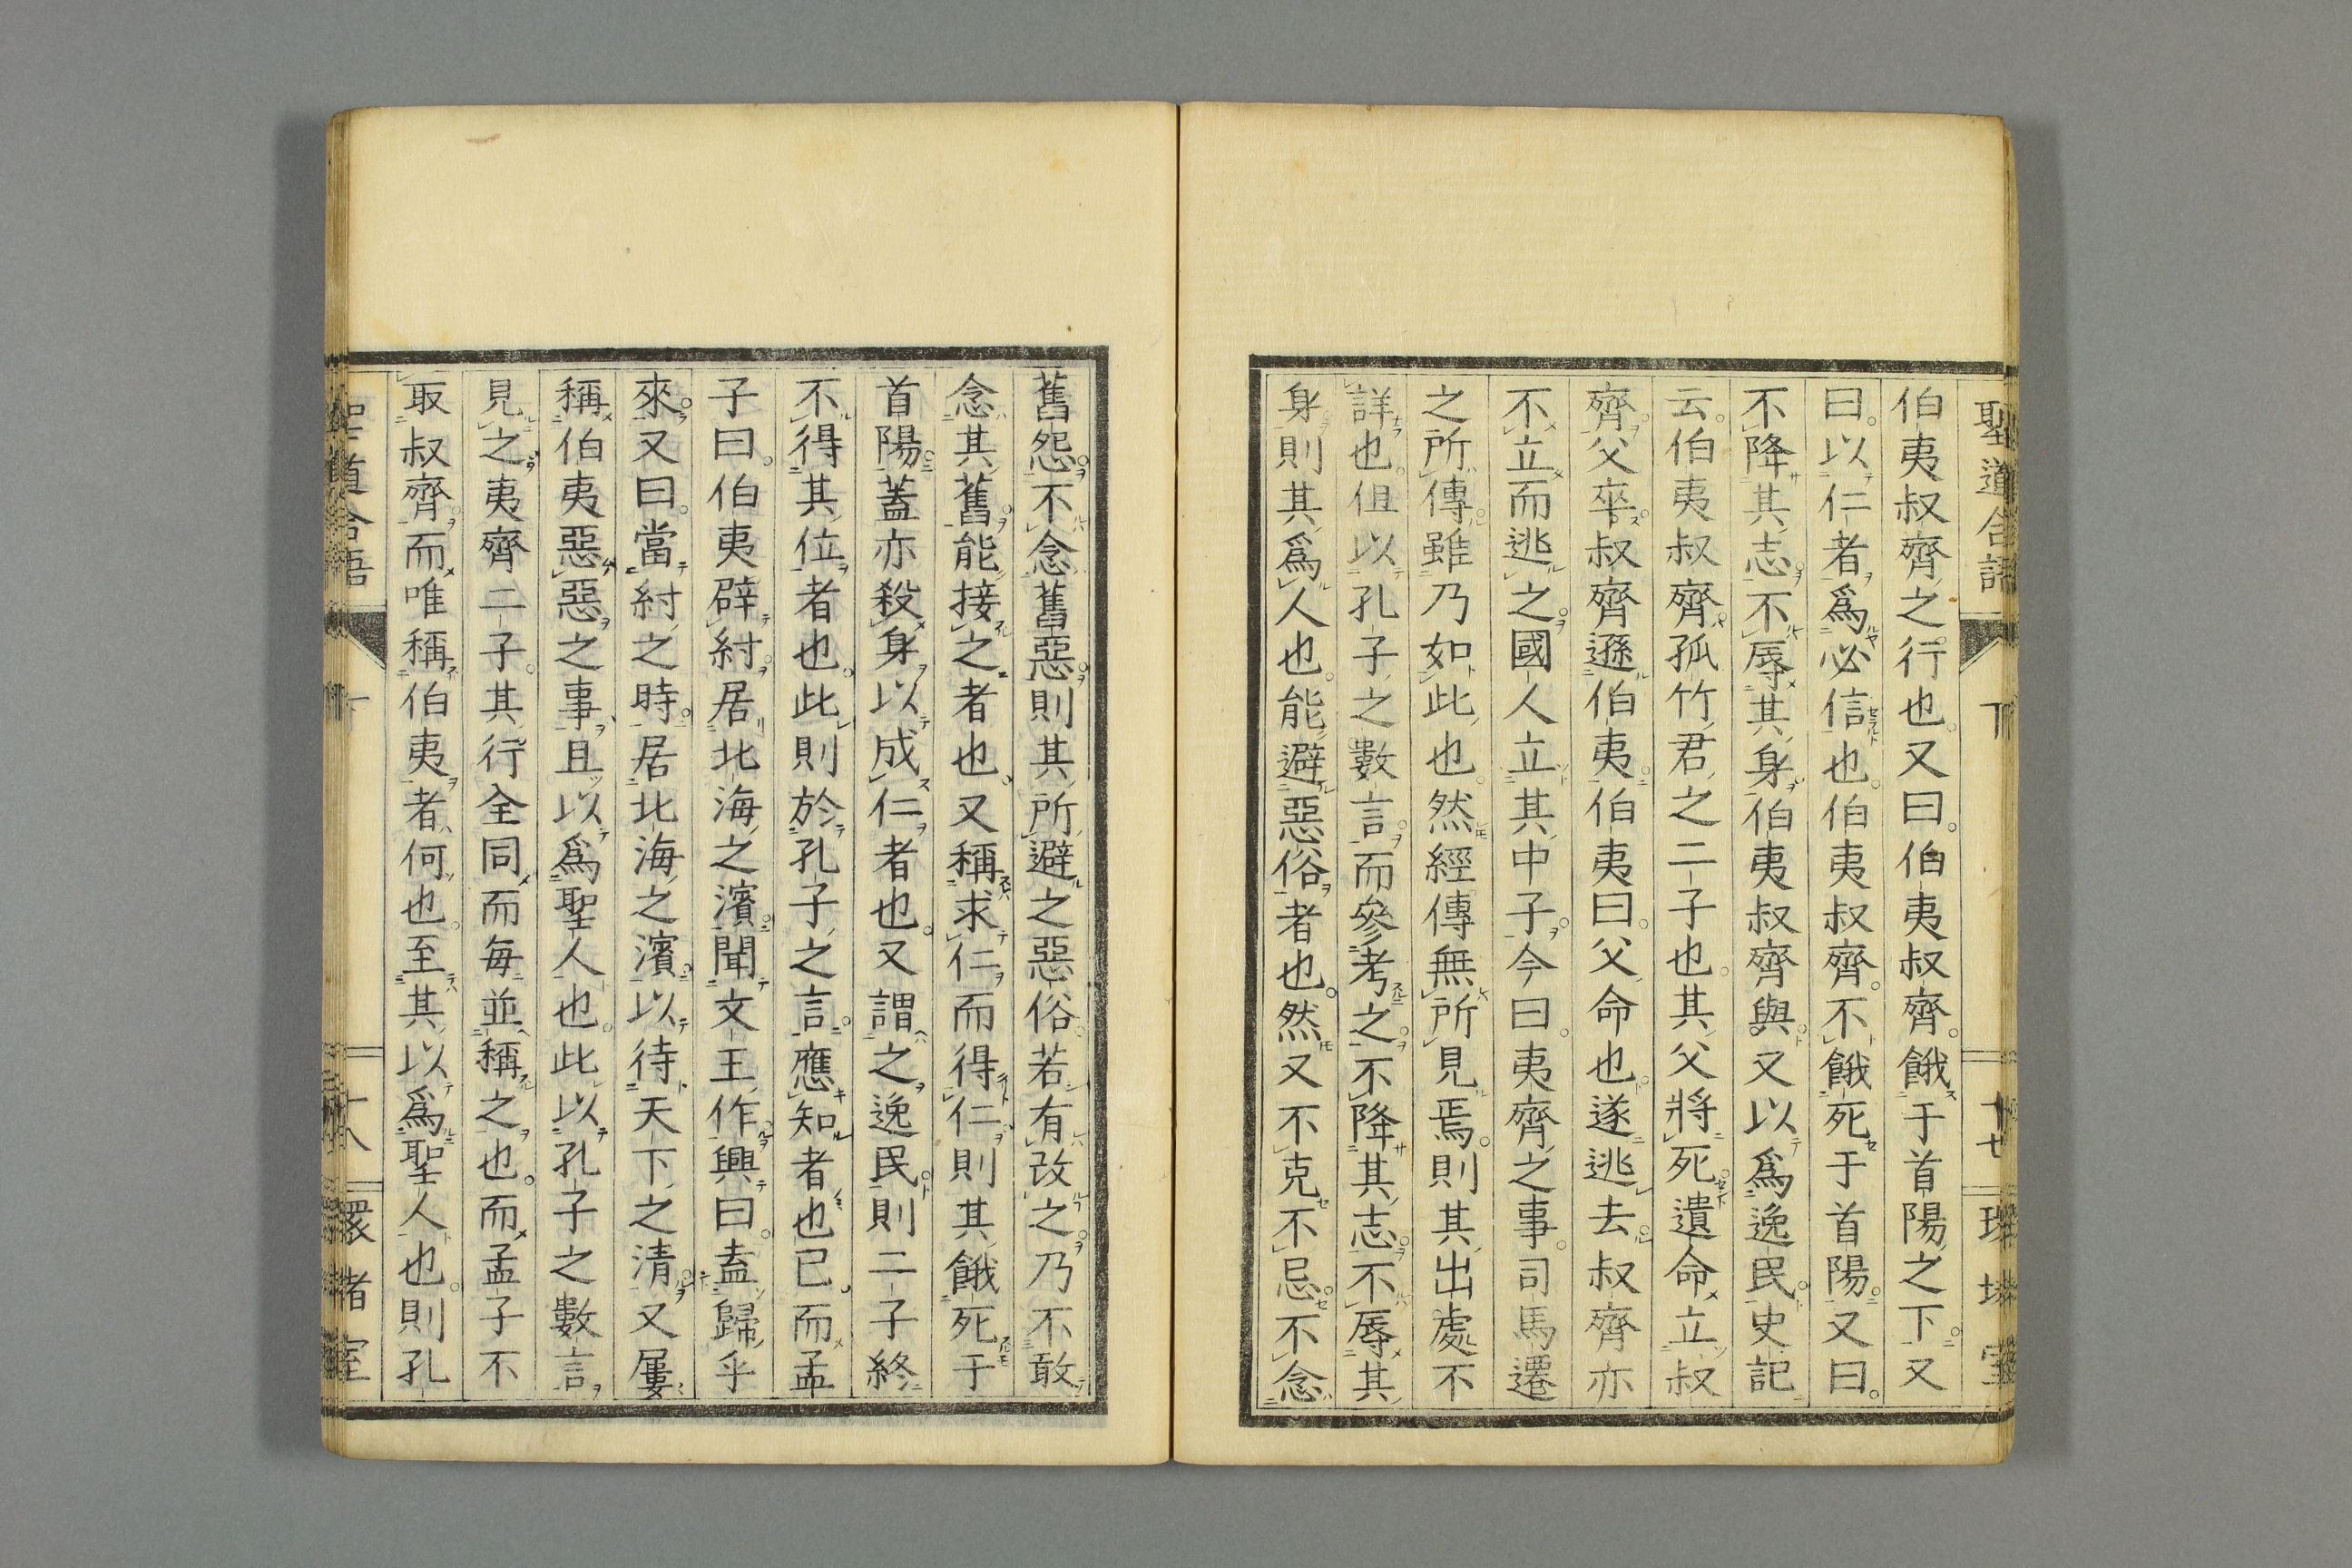 聖道合語
下
十七
伯夷叔齊之行也又曰伯夷叔齊餓于首陽之下又
曰以仁者爲必信也伯夷叔齊不餓死于首陽又曰
不降其志不辱其身伯夷叔齊與又以爲逸民史記
云伯夷叔齊孤竹君之二子也其父將死遺命立叔
齊父卒叔齊遜伯夷伯夷曰父命也遂逃去叔齊亦
不立而逃之國人立其中子今曰夷齊之事司馬遷
之所傳雖乃如此也然經傳無所見焉則其出處不
詳也但以孔子之數言而參考之不降其志不辱其
身則其爲人也能避惡俗者也然又不克不忌不念
舊怨不念舊惡則其所避之惡俗若有改之乃不敢
念其舊能接之者也又稱求仁而得仁則其餓死于
首陽蓋亦殺身以成仁者也又謂之逸民則二子終
不得其位者也此則於孔子之言應知者也已而孟
子曰伯夷辟紂居北海之濱聞文王作興曰盍歸乎
來又曰當紂之時居北海之濱以待天下之清又屢
稱伯夷惡惡之事且以爲聖人也此以孔子之數言
見之夷齊二子其行全同而每並稱之也而孟子不
取叔齊而唯稱伯夷者何也至其以爲聖人也則孔